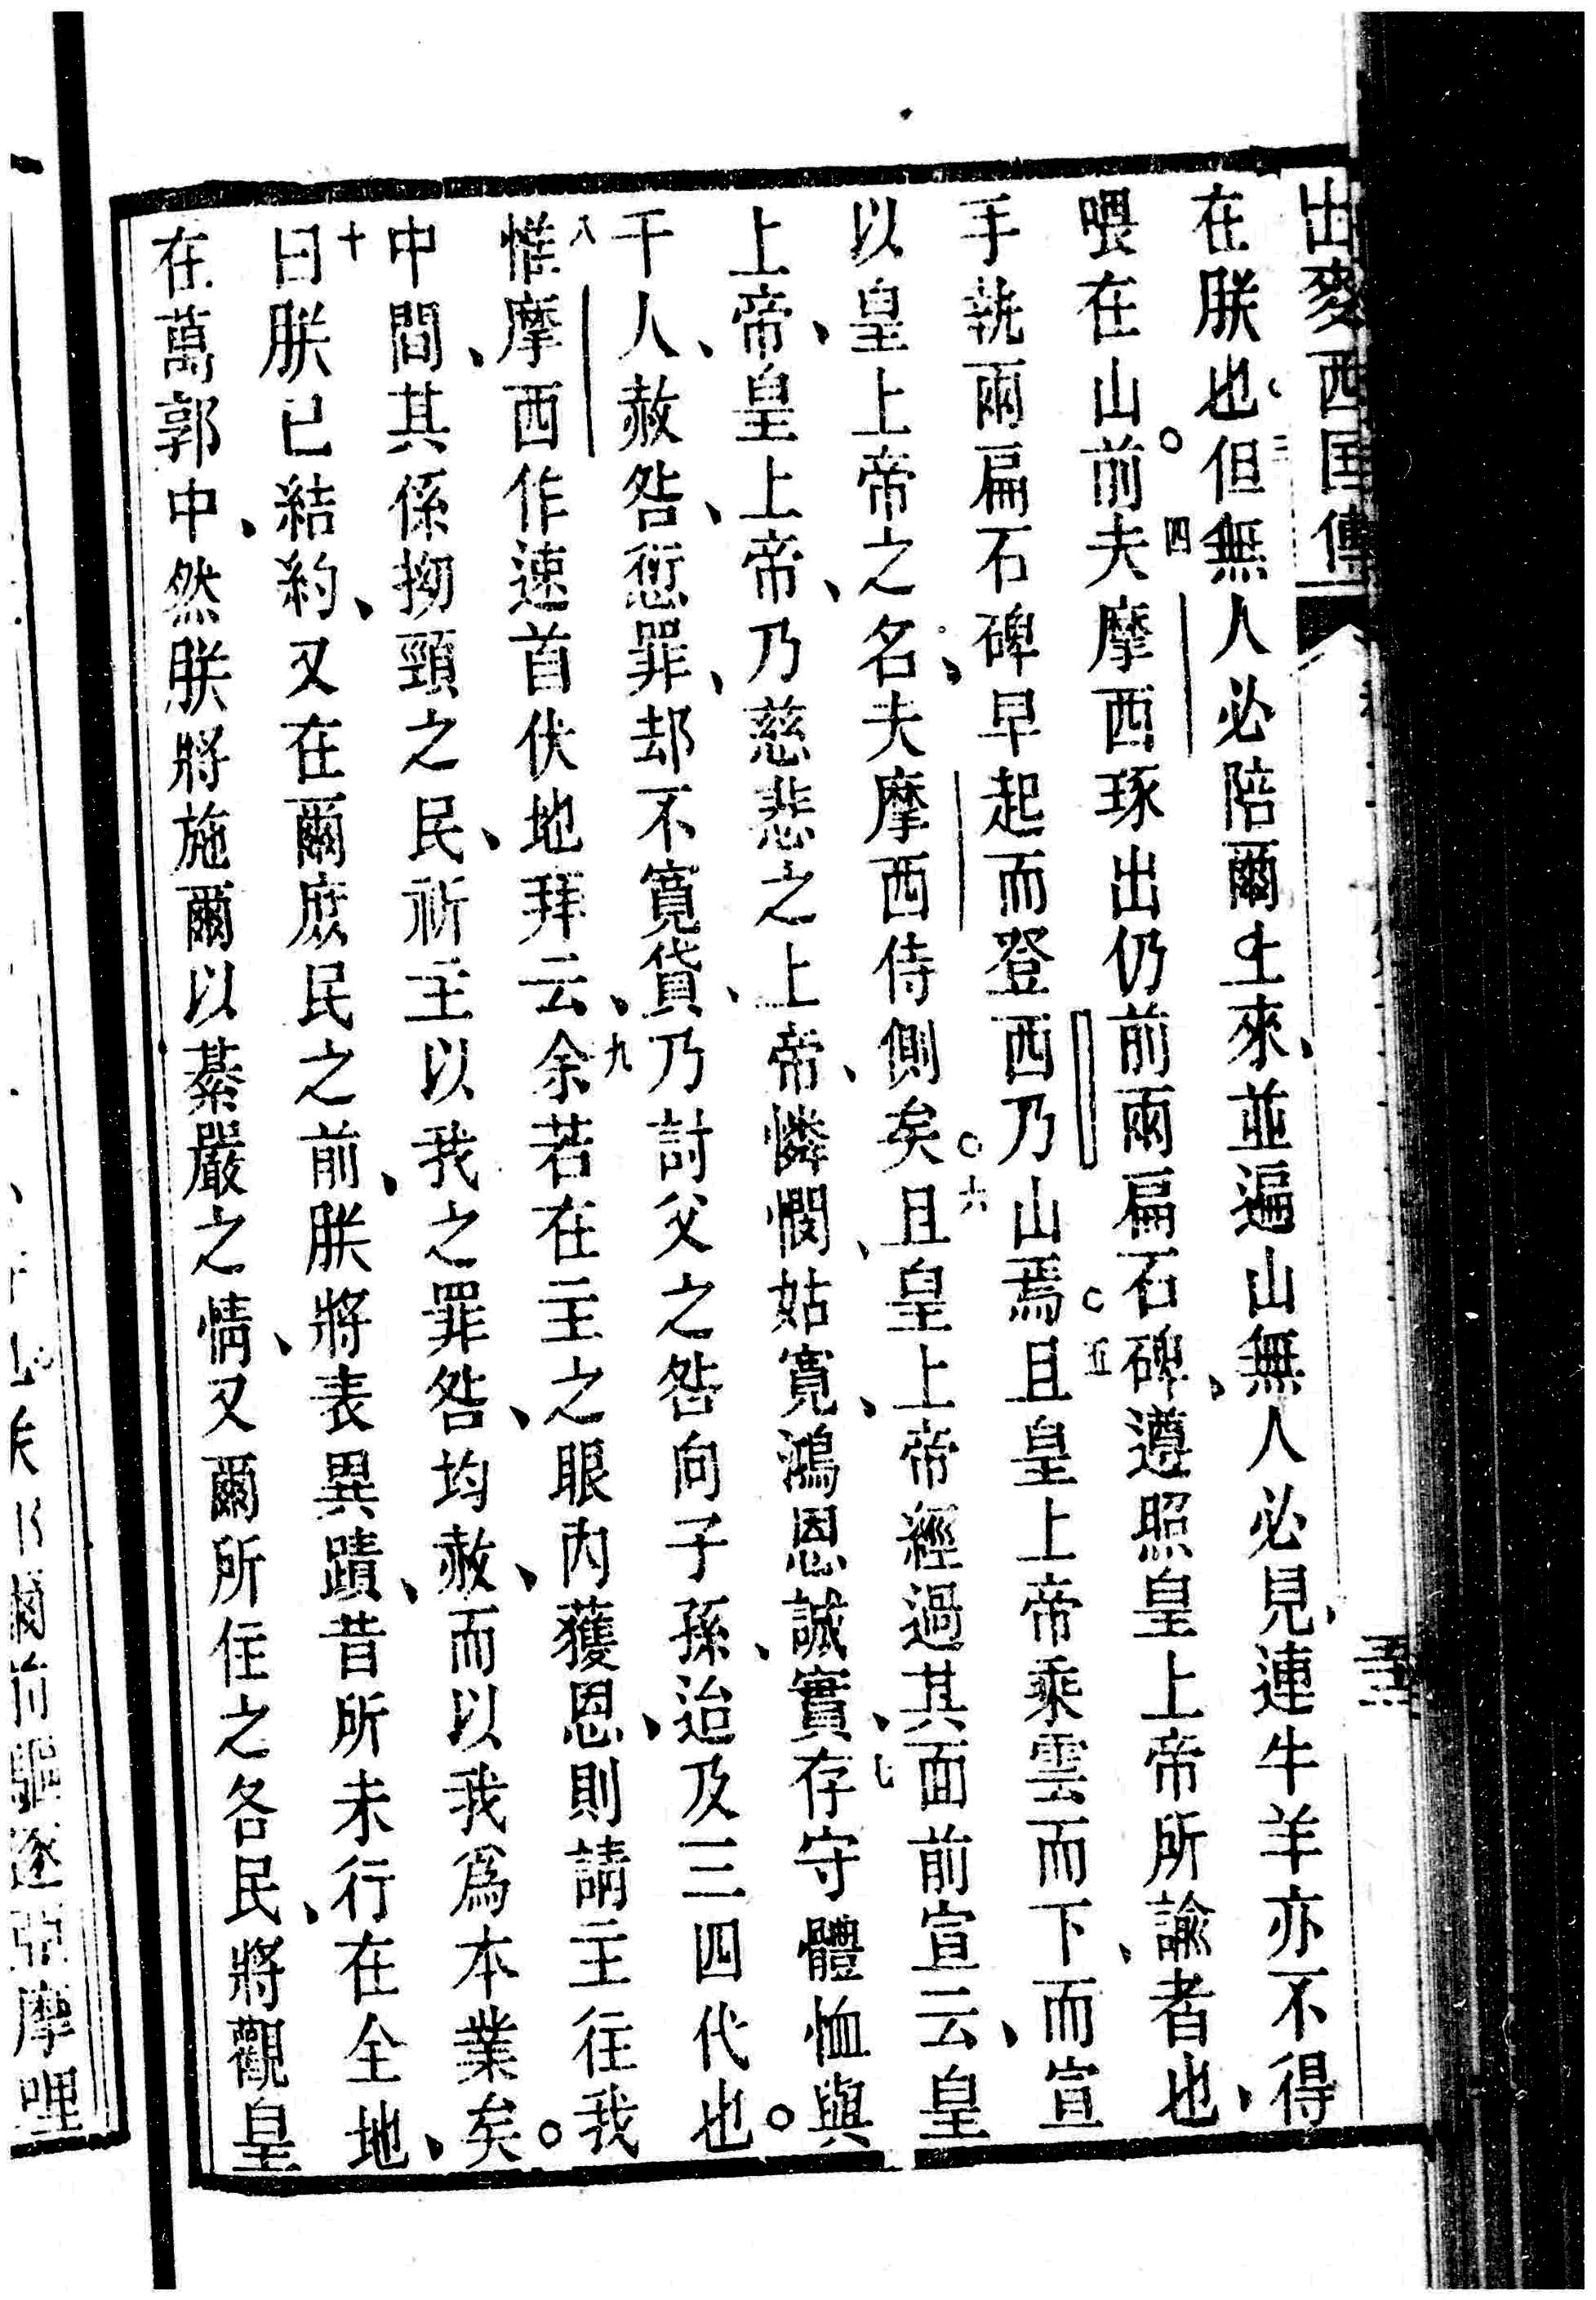 出麥西国傳
在朕也三但無人必陪爾上來、並遍山無人必見、連牛羊亦不得
喂在山前○四夫摩西琢出仍前兩扁石碑、遵照皇上帝所諭者也、
手執兩扁石碑早起而登西乃山焉○五且皇上帝乘雲而下、而宣
以皇上帝之名、夫摩西侍側矣○六且皇上帝經過其面前宣云、皇
上帝、皇上帝、乃慈悲之上帝、憐憫、姑寬、鴻恩誠實、七存守體恤與
千人、赦咎、愆罪、却不寬貸、乃討父之咎向子孫、迨及三四代也○
八惟摩西作速首伏地拜云、九余若在主之眼內獲恩、則請主往我
中間、其係拗頸之民、祈主以我之罪咎、均赦、而以我為本業矣○
十曰朕已結約、又在爾庶民之前、朕將表異蹟、昔所未行在全地、
在萬郭中、然朕將施爾以綦嚴之情、又爾所住之各民、將觀皇
驅逐亞摩哩